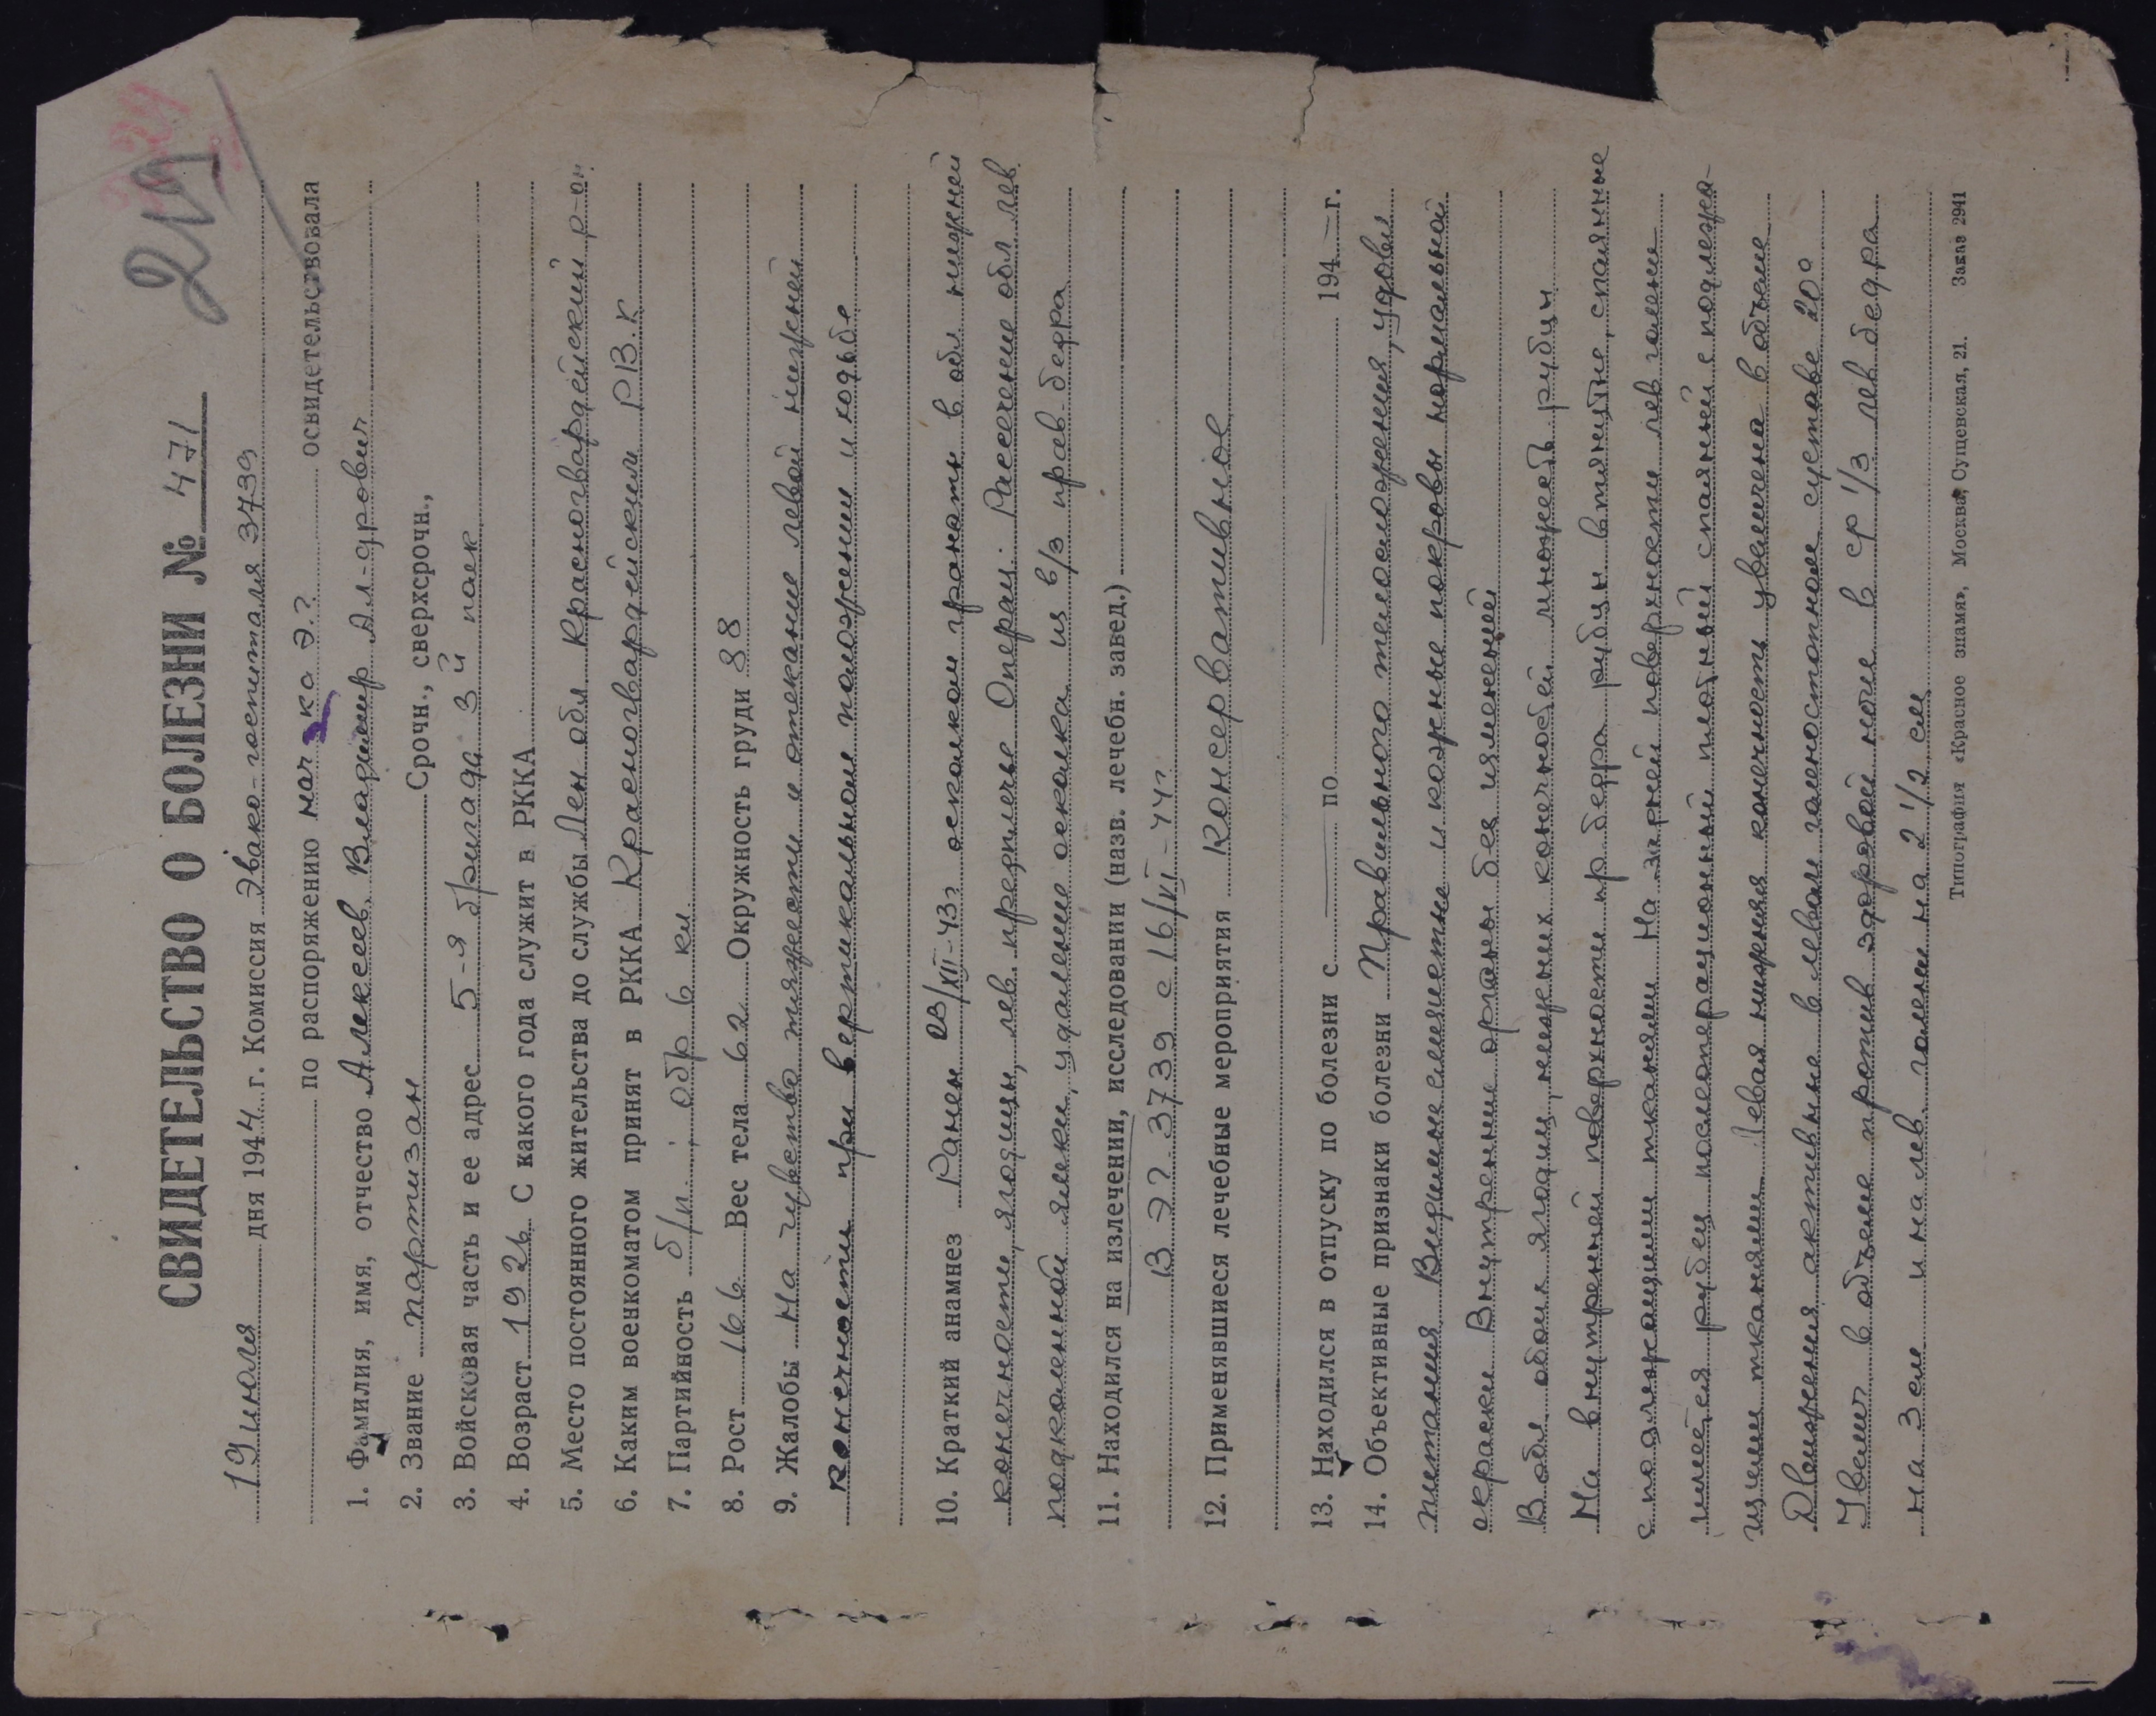 219
СВИДЕТЕЛЬСТВО О БОЛЕЗНИ № 471
19 июля дня 1944 г. Комиссия Эвако-госпиталя 3739
по распоряжению нач-ка Э.Г. освидетельствовала
1. Фамилия, имя, отчество Алексеев Владимир Ал-дрович
2. Звание партизан Срочн., сверхсрочн.,
3. Войсковая часть и ее адрес 5-я бригада 3й
4. Возраст 1926 С какого года служит в РККА
5. Место постоянного жительства до службы Лен обл Красногвардейский р-он
6. Каким военкоматом принят в РККА Красногвардейским РВК
7. Партийность б/п; обр 6 кл.
8. Рост 166 Вес тела 62 Окружность груди 88
9. Жалобы На чувство тяжести и отекание левой нижней
конечности при вертикальном положении и ходьбе
10. Краткий анамнез Ранен /XII-43г осколком гранаты в обл нижней
конечности, ягодицы, лев. предплечье Операц: Рассечение обл лев.
подколенной ямки, удаление осколка из в/з прав. бедра
11. Находился на излечении, исследовании (назв. лечебн. завед.)
В ЭГ-3739 с 16/VI-44г
12. Применявшиеся лечебные мероприятия Консервативное
13. Находился в отпуску по болезни с — по — 194 — г.
14. Объективные признаки болезни Правильного телосложения, удовл
питания Видимые слизистые и кожные покровы нормальной
окраски Внутренние органы без изменений
В обл обоих ягодиц, нижних конечностей множеств рубцы
На внутренней поверхности пр бедра рубцы втянутые, спаянные
с подлежащими тканями На задней поверхности лев голени
имеется рубец послеоперационный плотный спаянный с подлежа-
щими тканями Левая нижняя конечность увеличена в объеме
Движения активные в левом голеностопном суставе 20°
Увелич в объеме против здоровой ноги в ср 1/3 лев бедра
на 3 см и на лев. голени на 2 1/2 см
Типография «Красное знамя», Москва, Сущевская, 21. Заказ 2941